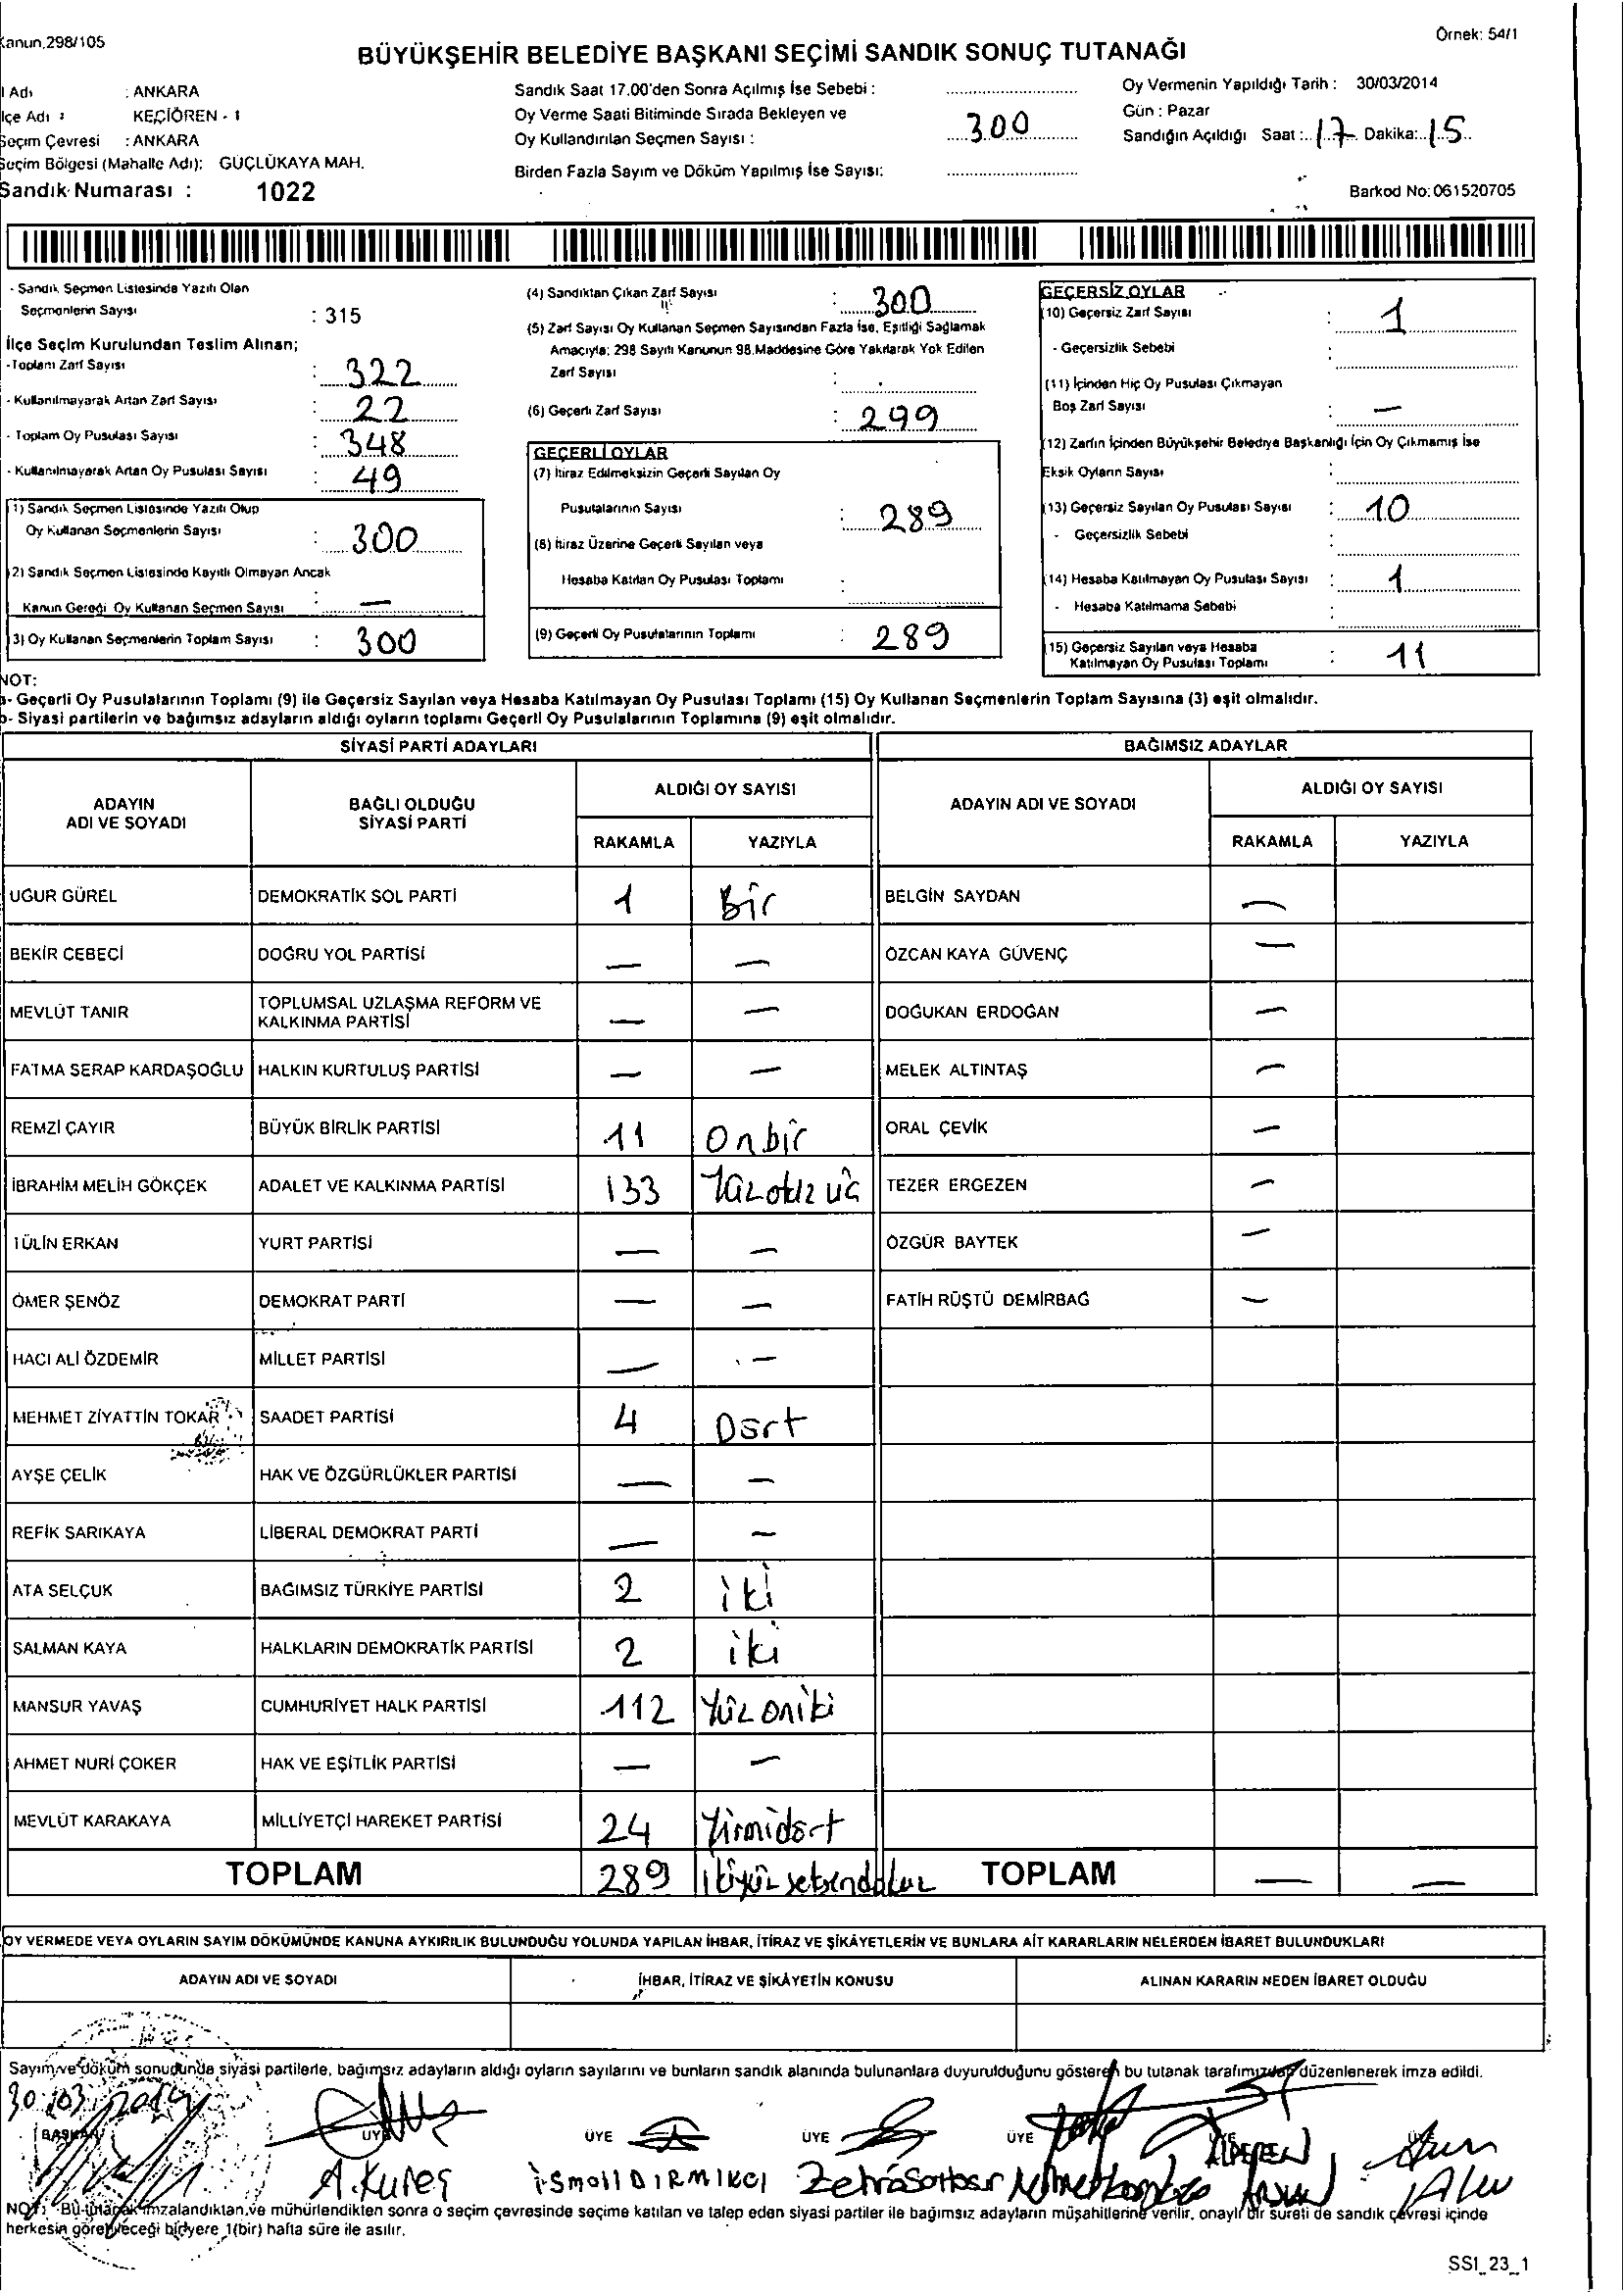 Kanun.298/105
Örnek: 54/1
BÜYÜKŞEHİR BELEDİYE BAŞKANI SEÇİMİ SANDIK SONUÇ TUTANAĞI
l Adı : ANKARA
lçe Adı : KEÇİÖREN - 1
Seçim Çevresi : ANKARA
Seçim Bölgesi (Mahalle Adı): GÜÇLÜKAYA MAH.
Sandık Numarası : 1022
Sandık Saat 17.00'den Sonra Açılmış İse Sebebi :
Oy Verme Saati Bitiminde Sırada Bekleyen ve
Oy Kullandırılan Seçmen Sayısı : 300
Birden Fazla Sayım ve Döküm Yapılmış İse Sayısı:
Oy Vermenin Yapıldığı Tarih : 30/03/2014
Gün : Pazar
Sandığın Açıldığı Saat : 17 Dakika: 15
Barkod No: 061520705
- Sandık Seçmen Listesinde Yazılı Olan
Seçmenlerin Sayısı : 315
İlçe Seçim Kurulundan Teslim Alınan;
-Toplam Zarf Sayısı : 322
- Kullanılmayarak Artan Zarf Sayısı : 22
- Toplam Oy Pusulası Sayısı : 348
- Kullanılmayarak Artan Oy Pusulası Sayısı : 49
1) Sandık Seçmen Listesinde Yazılı Olup
Oy Kullanan Seçmenlerin Sayısı : 300
2) Sandık Seçmen Listesinde Kayıtlı Olmayan Ancak
Kanun Gereği Oy Kullanan Seçmen Sayısı : —
3) Oy Kullanan Seçmenlerin Toplam Sayısı : 300
(4) Sandıktan Çıkan Zarf Sayısı : 300
(5) Zarf Sayısı Oy Kullanan Seçmen Sayısından Fazla İse, Eşitliği Sağlamak
Amacıyla; 298 Sayılı Kanunun 98.Maddesine Göre Yakılarak Yok Edilen
Zarf Sayısı :
(6) Geçerli Zarf Sayısı : 299
GEÇERLİ OYLAR
(7) İtiraz Edilmeksizin Geçerli Sayılan Oy
Pusulalarının Sayısı : 289
(8) İtiraz Üzerine Geçerli Sayılan veya
Hesaba Katılan Oy Pusulası Toplamı :
(9) Geçerli Oy Pusulalarının Toplamı : 289
GEÇERSİZ OYLAR
(10) Geçersiz Zarf Sayısı : 1
- Geçersizlik Sebebi :
(11) İçinden Hiç Oy Pusulası Çıkmayan
Boş Zarf Sayısı : —
(12) Zarfın İçinden Büyükşehir Belediye Başkanlığı İçin Oy Çıkmamış İse
Eksik Oyların Sayısı :
(13) Geçersiz Sayılan Oy Pusulası Sayısı : 10
- Geçersizlik Sebebi :
(14) Hesaba Katılmayan Oy Pusulası Sayısı : 1
- Hesaba Katılmama Sebebi :
(15) Geçersiz Sayılan veya Hesaba
Katılmayan Oy Pusulası Toplamı : 11
NOT:
a- Geçerli Oy Pusulalarının Toplamı (9) ile Geçersiz Sayılan veya Hesaba Katılmayan Oy Pusulası Toplamı (15) Oy Kullanan Seçmenlerin Toplam Sayısına (3) eşit olmalıdır.
b- Siyasi partilerin ve bağımsız adayların aldığı oyların toplamı Geçerli Oy Pusulalarının Toplamına (9) eşit olmalıdır.
SİYASİ PARTİ ADAYLARI BAĞIMSIZ ADAYLAR
ADAYIN ADI VE SOYADI BAĞLI OLDUĞU SİYASİ PARTİ ALDIĞI OY SAYISI ADAYIN ADI VE SOYADI ALDIĞI OY SAYISI
RAKAMLA YAZIYLA RAKAMLA YAZIYLA
UĞUR GÜREL DEMOKRATİK SOL PARTİ 1 Bir BELGİN SAYDAN —
BEKİR CEBECİ DOĞRU YOL PARTİSİ — — ÖZCAN KAYA GÜVENÇ —
MEVLÜT TANIR TOPLUMSAL UZLAŞMA REFORM VE KALKINMA PARTİSİ — — DOĞUKAN ERDOĞAN —
FATMA SERAP KARDAŞOĞLU HALKIN KURTULUŞ PARTİSİ — — MELEK ALTINTAŞ —
REMZİ ÇAYIR BÜYÜK BİRLİK PARTİSİ 11 Onbir ORAL ÇEVİK —
İBRAHİM MELİH GÖKÇEK ADALET VE KALKINMA PARTİSİ 133 Yüzotuz üç TEZER ERGEZEN —
TÜLİN ERKAN YURT PARTİSİ — — ÖZGÜR BAYTEK —
ÖMER ŞENÖZ DEMOKRAT PARTİ — — FATİH RÜŞTÜ DEMİRBAĞ —
HACI ALİ ÖZDEMİR MİLLET PARTİSİ — —
MEHMET ZİYATTİN TOKAR SAADET PARTİSİ 4 Dört
AYŞE ÇELİK HAK VE ÖZGÜRLÜKLER PARTİSİ — —
REFİK SARIKAYA LİBERAL DEMOKRAT PARTİ — —
ATA SELÇUK BAĞIMSIZ TÜRKİYE PARTİSİ 2 iki
SALMAN KAYA HALKLARIN DEMOKRATİK PARTİSİ 2 iki
MANSUR YAVAŞ CUMHURİYET HALK PARTİSİ 112 Yüz oniki
AHMET NURİ ÇOKER HAK VE EŞİTLİK PARTİSİ — —
MEVLÜT KARAKAYA MİLLİYETÇİ HAREKET PARTİSİ 24 Yirmidört
TOPLAM 289 ikiyüz seksendokuz TOPLAM — —
OY VERMEDE VEYA OYLARIN SAYIM DÖKÜMÜNDE KANUNA AYKIRILIK BULUNDUĞU YOLUNDA YAPILAN İHBAR, İTİRAZ VE ŞİKÂYETLERİN VE BUNLARA AİT KARARLARIN NELERDEN İBARET BULUNDUKLARI
ADAYIN ADI VE SOYADI İHBAR, İTİRAZ VE ŞİKÂYETİN KONUSU ALINAN KARARIN NEDEN İBARET OLDUĞU
Sayım ve döküm sonucunda siyasi partilerle, bağımsız adayların aldığı oyların sayılarını ve bunların sandık alanında bulunanlara duyurulduğunu gösteren bu tutanak tarafımızdan düzenlenerek imza edildi.
30/03/2014
BAŞKAN ÜYE ÜYE ÜYE ÜYE
A.Kureş İsmail DIRMIKCI
NOT: Bu tutanak imzalandıktan ve mühürlendikten sonra o seçim çevresinde seçime katılan ve talep eden siyasi partiler ile bağımsız adayların müşahitlerine verilir, onaylı bir sureti de sandık çevresi içinde
herkesin görebileceği bir yere 1(bir) hafta süre ile asılır.
SS1_23_1